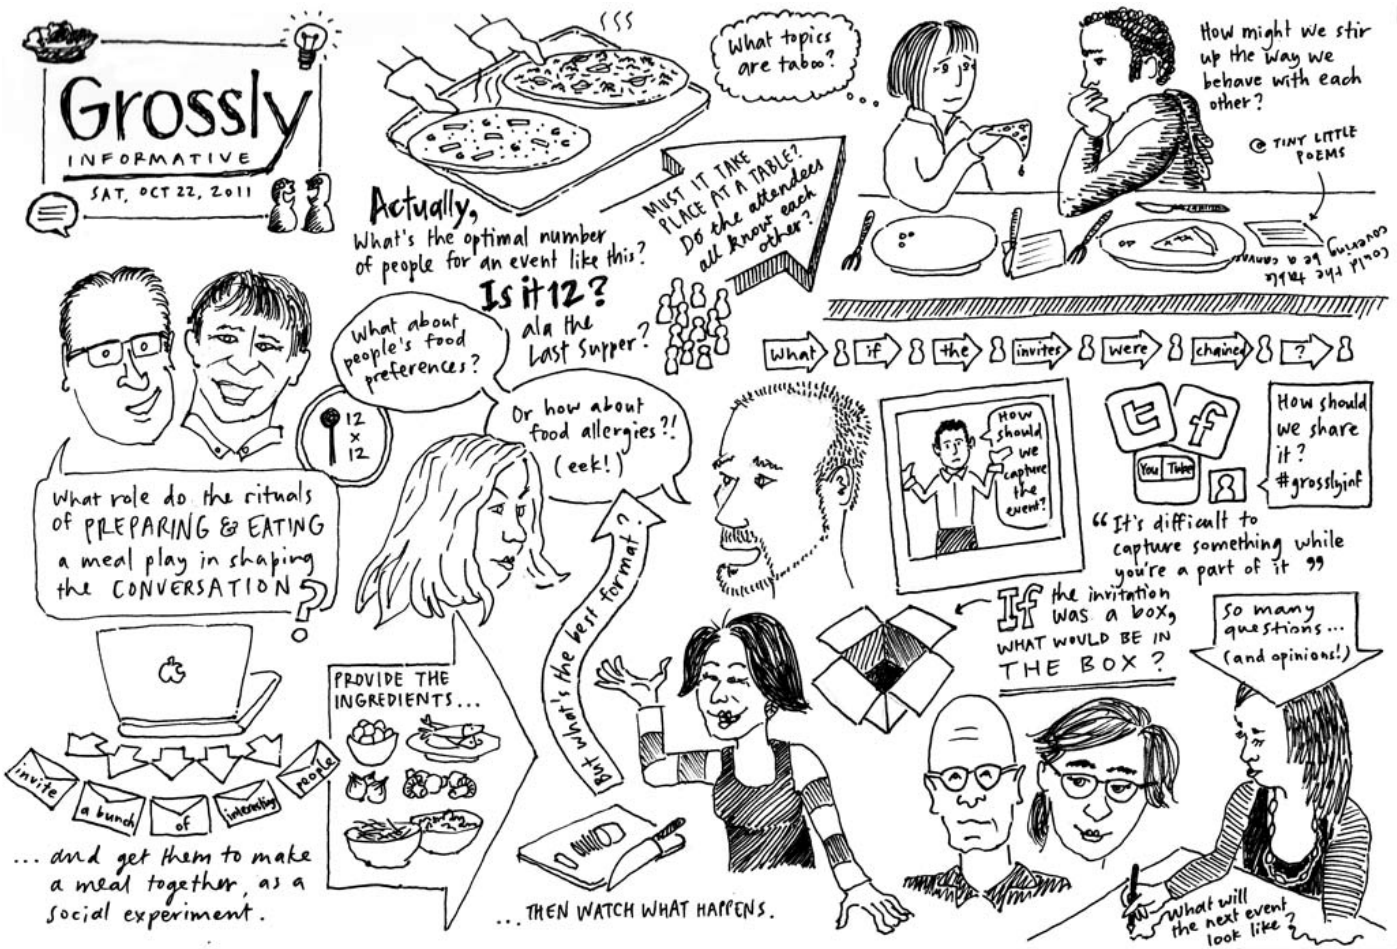 Grossly
INFORMATIVE
SAT, OCT 22, 2011
Actually,
What's the optimal number
of people for an event like this?
Is it 12?
ala the
Last Supper?
MUST IT TAKE
PLACE AT A TABLE?
Do the attendees
all know each
other?
What topics
are taboo?
How might we stir
up the way we
behave with each
other?
TINY LITTLE
POEMS
Could the table
covering be a canvas
What if the invites were chained ?
What about
people's food
preferences?
Or how about
food allergies?!
(eek!)
12
x
12
What role do the rituals
of PREPARING & EATING
a meal play in shaping
the CONVERSATION?
invite
a bunch
of
interesting
people
... and get them to make
a meal together, as a
social experiment.
PROVIDE THE
INGREDIENTS...
But what's the best format?
... THEN WATCH WHAT HAPPENS.
HOW
should
we
capture
the
event?
t
f
You Tube
How should
we share
it?
#grosslyinf
"It's difficult to
capture something while
you're a part of it"
If the invitation
was a box,
WHAT WOULD BE IN
THE BOX?
So many
questions...
(and opinions!)
What will
the next event
look like?